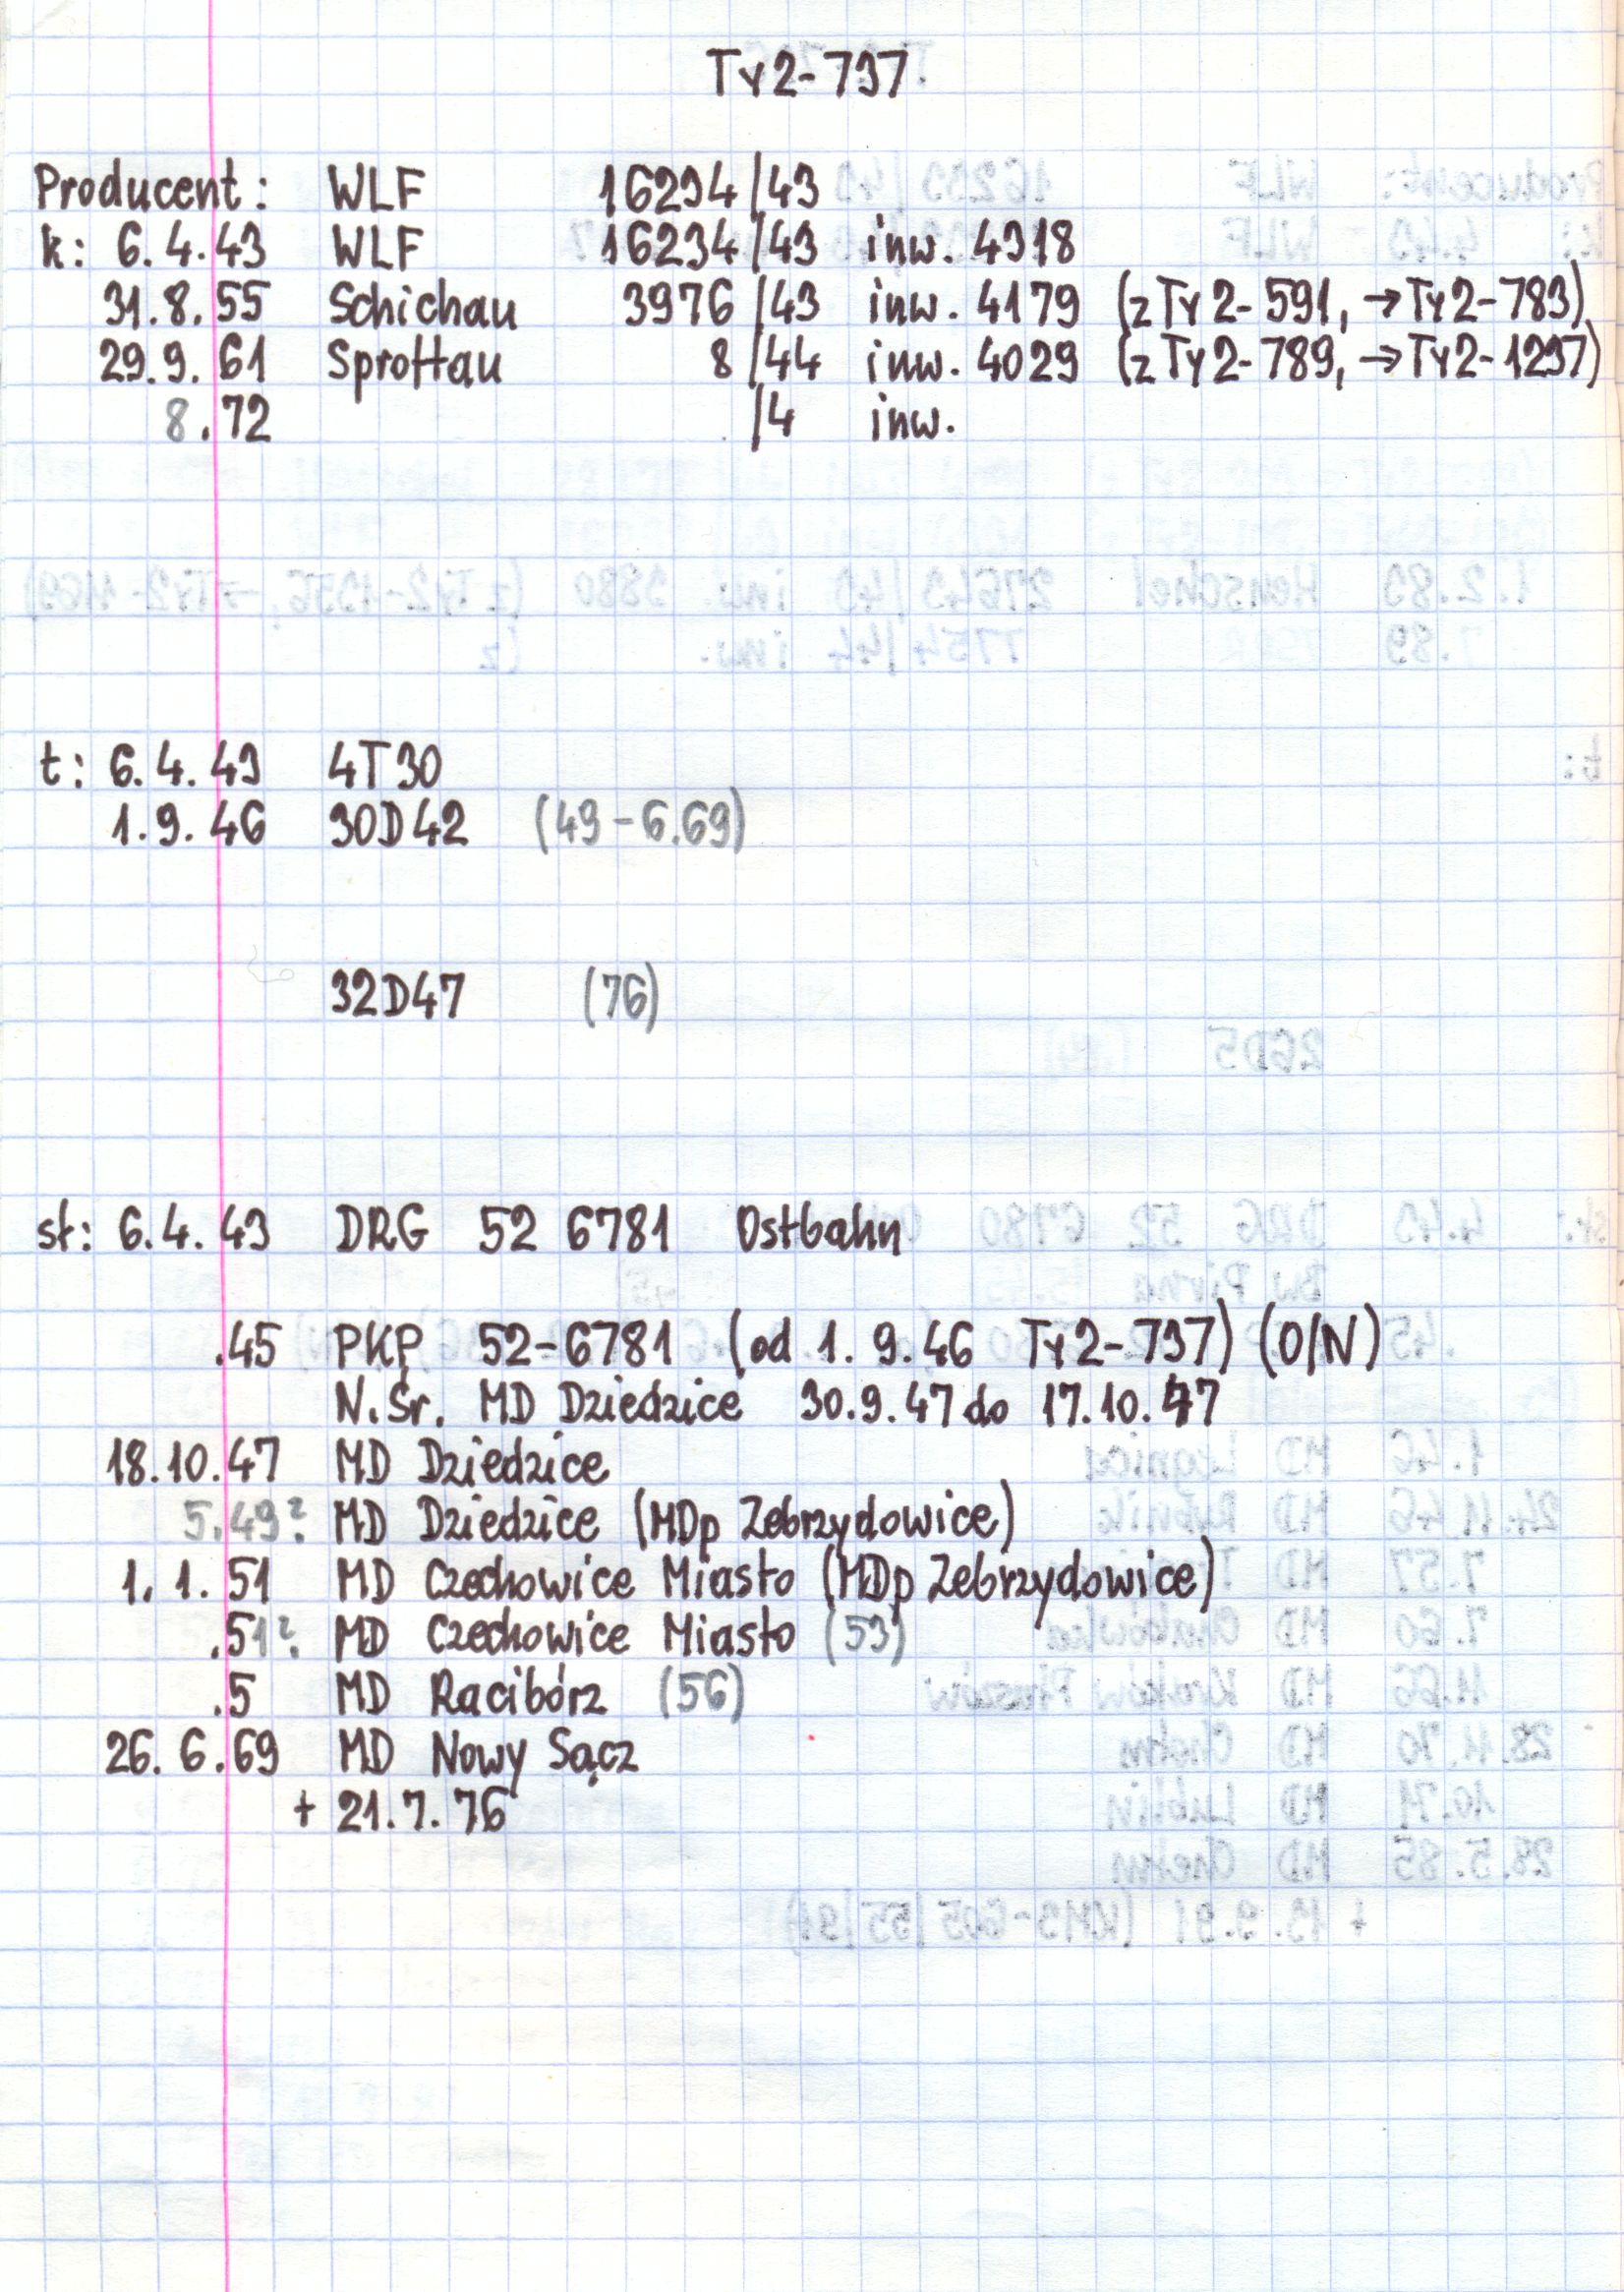 Ty2-737
Producent: WLF 16234/43
k: 6.4.43 WLF 16234/43 inw. 4318
31.8.55 Schichau 3976/43 inw. 4179 (z Ty2-591, →Ty2-783)
29.9.61 Sprottau 8/44 inw. 4029 (z Ty2-789, →Ty2-1237)
8.72 /4 inw.
t: 6.4.43 4T30
1.9.46 30D42 (49-6.69)
32D47 (76)
st: 6.4.43 DRG 52 6781 Ostbahn
.45 PKP 52-6781 (od 1.9.46 Ty2-737) (O/N)
N.Śr. MD Dziedzice 30.9.47 do 17.10.47
18.10.47 MD Dziedzice
5.49? MD Dziedzice (MDp Zebrzydowice)
1.1.51 MD Czechowice Miasto (MDp Zebrzydowice)
.51? MD Czechowice Miasto (53)
.5 MD Racibórz (56)
26.6.69 MD Nowy Sącz
+ 21.7.76